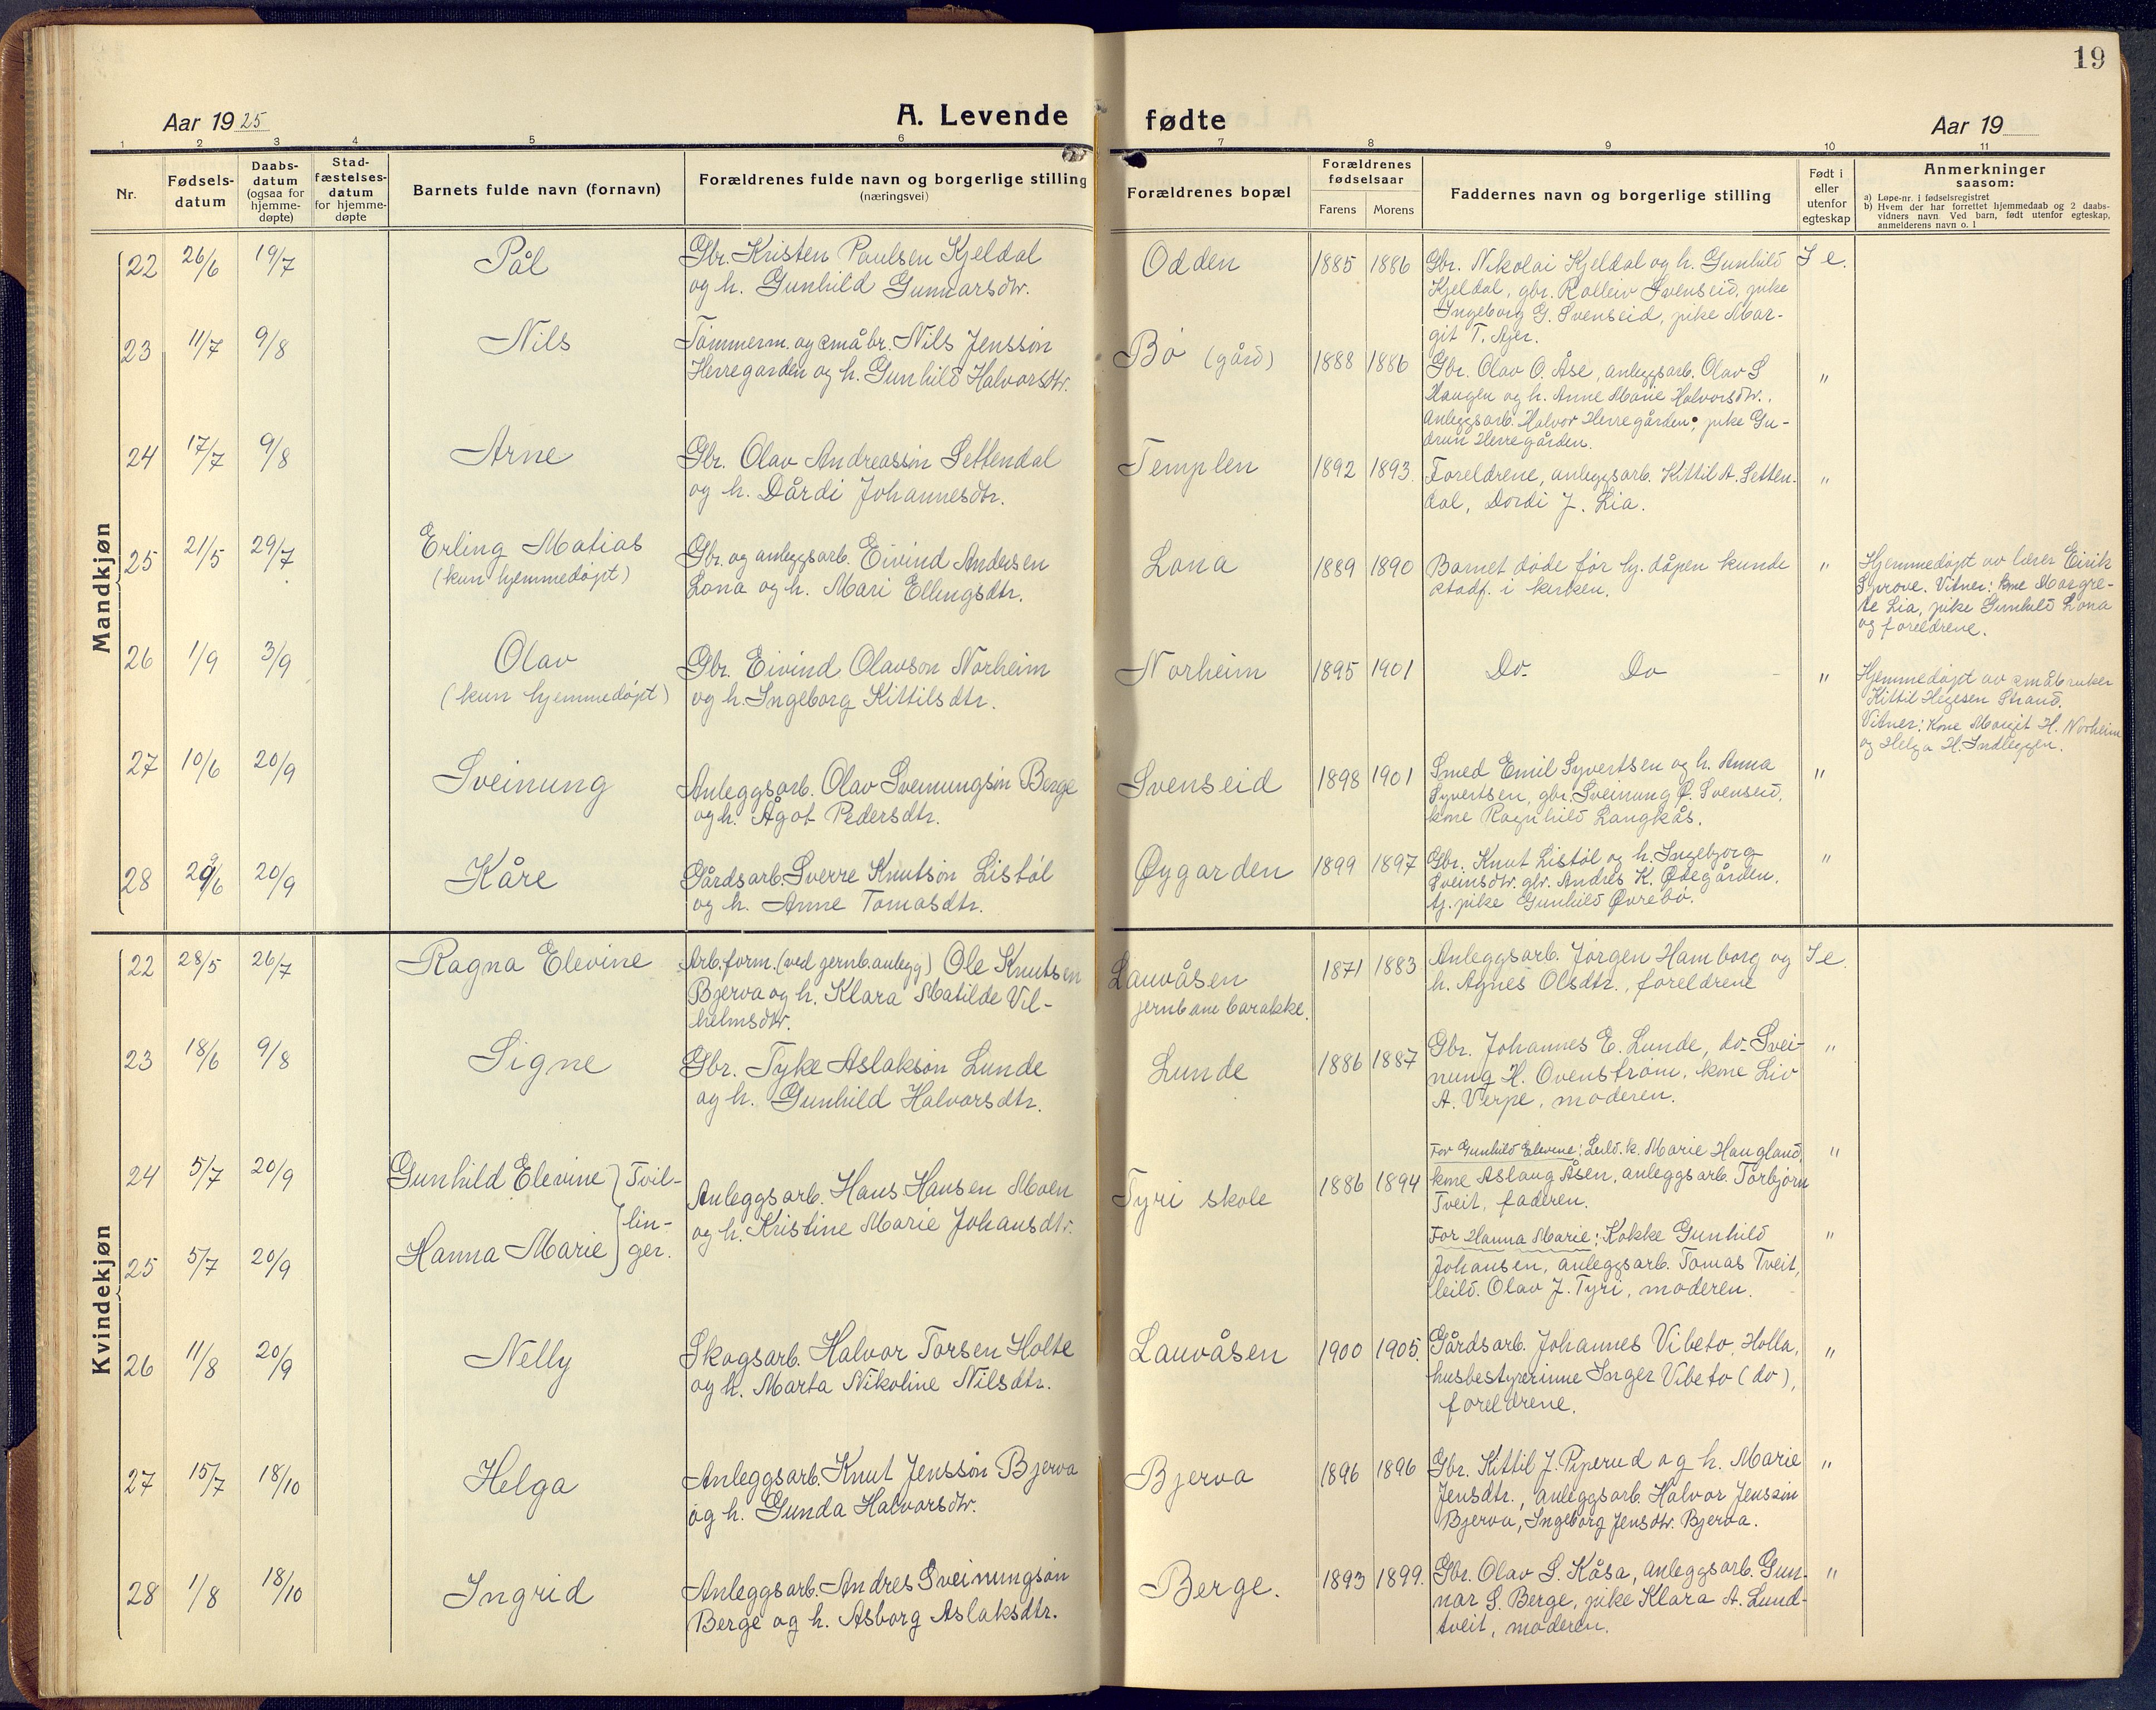 19
Aar 1925
A. Levende
fødte
Aar 19
1 2 3 4 5 6 7 8 9 10 11
Nr.
Fødsels-
datum
Daabs-
datum
(ogsaa for
hjemme-
døpte)
Stad-
fæstelses-
datum
for hjemme-
døpte
Barnets fulde navn (fornavn)
Forældrenes fulde navn og borgerlige stilling
(næringsvei)
Forældrenes bopæl
Forældrenes
fødselsaar
Farens Morens
Faddernes navn og borgerlige stilling
Født i
eller
utenfor
egteskap
Anmerkninger
saasom:
a) Løpe-nr. i fødselsregistret
b) Hvem der har forrettet hjemmedaab og 2 daabs-
vidners navn. Ved barn, født utenfor egteskap,
anmelderens navn o. l
Mandkjøn
22 26/6 19/7 Pål
Gbr. Kristen Paulsen Kjeldal
og h. Gunhild Gunnarsdtr.
Odden 1885 1886
Gbr. Nikolai Kjeldal og h. Gunhild
Kjeldal, gbr. Rolleiv Svenseid, pike
Ingeborg G. Svenseid, pike Mar-
git T. Ajer.
I e.
23 11/7 9/8 Nils
Tømmerm. og småbr. Nils Jensson
Herregarden og h. Gunhild Halvorsdtr.
Bø (gård) 1888 1886
Gbr. Olav O. Åse, anleggsarb. Olav S
Haugen og h. Anne Marie Halvorsdtr.,
anleggsarb. Halvor Herregården, pike Gu-
drun Herregården.
"
24 17/7 9/8 Arne
Gbr. Olav Andreasson Settendal
og h. Dårdi Johannesdtr.
Templen 1892 1893.
Foreldrene, anleggsarb. Kittil A. Setten-
dal, Dordi J. Lia.
"
25 21/5 29/7 Erling Matias
(kun hjemmedøpt)
Gbr. og anleggsarb. Eivind Andersen
Lona og h. Mari Ellingsdtr.
Lona 1889 1890
Barnet døde før hj. dåpen kunde
stadf. i kirken.
"
Hjemmedøpt av lærer Eirik
Sprove. Vitner: kone Margre-
te Lia, pike Gunhild Lona
og foreldrene.
26 1/9 3/9 Olav
(kun hjemmedøpt)
Gbr. Eivind Olavson Norheim
og h. Ingeborg Kittilsdtr.
Norheim 1895 1901
Do Do
"
Hjemmedøpt av småbruker
Kittil Hegesen Strand.
Vitner: kone Margit H. Norheim
og Helga H. Indleggen.
27 10/6 20/9 Sveinung
Anleggsarb. Olav Sveinungson Berge
og h. Ågot Pedersdtr.
Svenseid 1898 1901
Smed Emil Syvertsen og h. Anna
Syvertsen, gbr. Sveinung Ø. Svenseid,
kone Ragnhild Langkås.
"
28 29/6 20/9 Kåre
Gårdsarb. Sverre Knutson Listøl
og h. Anne Tomasdtr.
Øygarden 1899 1897
Gbr. Knut Listøl og h. Ingebjorg
Sveinsdtr. gbr. Andres K. Ødegården,
tj. pike Gunhild Øvrebø.
"
Kvindekjøn
22 28/5 26/7 Ragna Elevine
Arb.form. (ved jernb.anlegg) Ole Knutsen
Bjerva og h. Klara Matilde Vil-
helmsdtr.
Lauvåsen
jernbane barakke.
1871 1883
Anleggsarb. Jørgen Hamborg og
h. Agnes Olsdtr., foreldrene
I e.
23 18/6 9/8 Signe
Gbr. Tyke Aslakson Lunde
og h. Gunhild Halvorsdtr.
Lunde 1886 1887
Gbr. Johannes E. Lunde, do- Svei-
nung H. Ovenstrøm, kone Liv
A. Verpe, moderen.
"
24 5/7 20/9 Gunhild Elevine } Tvil-
Anleggsarb. Hans Hansen Moen
og h. Kristine Marie Johansdtr.
Tyri skole 1886 1894
For Gunhild Elevine: Leild. k. Marie Haugland,
kone Aslaug Åsen, anleggsarb. Torbjørn
Tveit, faderen.
"
25 5/7 20/9 Hanna Marie } lin-
ger.
For Hanna Marie: Kokke Gunhild
Johansen, anleggsarb. Tomas Tveit,
leild. Olav J. Tyri, moderen.
"
26 11/8 20/9 Nelly
Skogsarb. Halvor Torsen Holte
og h. Marta Nikoline Nilsdtr.
Lauvåsen 1900 1905.
Gårdsarb. Johannes Vibeto, Holla,
husbestyrerinne Inger Vibeto (do),
foreldrene.
"
27 15/7 18/10 Helga
Anleggsarb. Knut Jensson Bjerva
og h. Gunda Halvorsdtr.
Bjerva 1896 1896
Gbr. Kittil J. Piperud og h. Marie
Jensdtr., anleggsarb. Halvor Jensson
Bjerva, Ingeborg Jensdtr. Bjerva.
"
28 1/8 18/10 Ingrid
Anleggsarb. Andres Sveinungson
Berge og h. Asborg Aslaksdtr.
Berge. 1893 1899.
Gbr. Olav S. Kåsa, anleggsarb. Gun-
nar S. Berge, pike Klara A. Lund-
tveit, moderen.
"